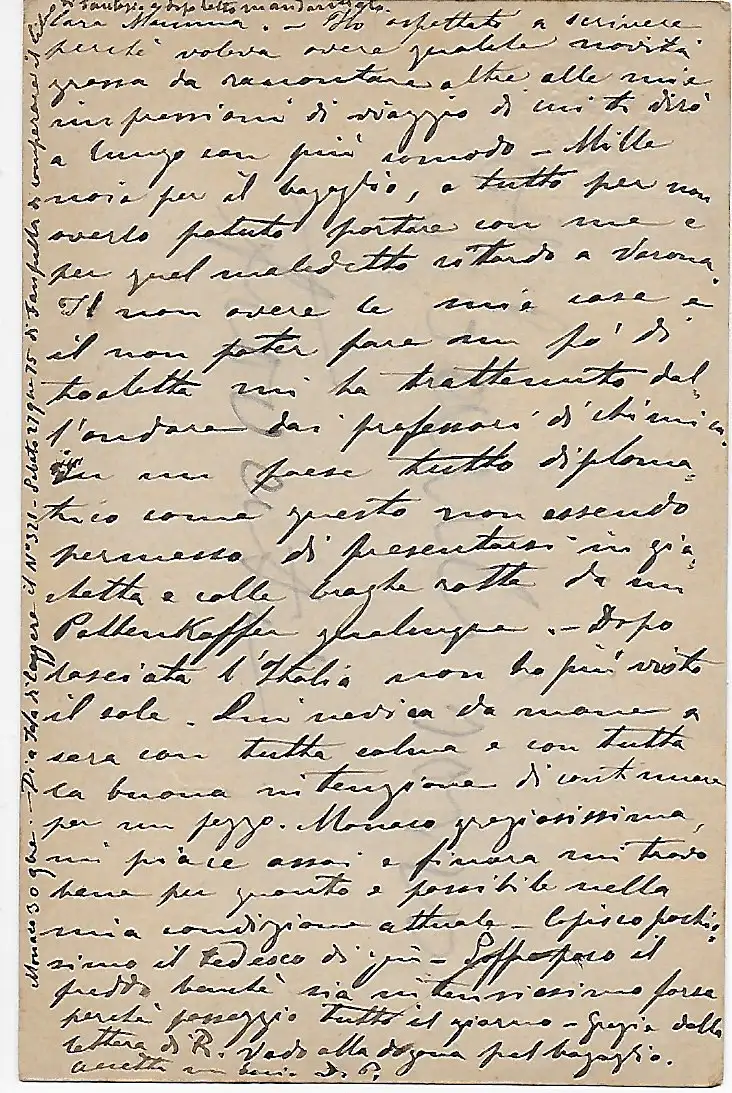 Cara Mamma. - Ho aspettato a scrivere
perchè voleva avere qualche novità
grossa da raccontare oltre alle mie
impressioni di viaggio di cui ti dirò
a lungo con più comodo - Mille
noie per il bagaglio, e tutto per non
averlo potuto portare con me e
per quel maledetto ritardo a Verona.
Il non avere le mie cose e
il non poter fare un po' di
toeletta mi ha trattenuto dal-
l'andare dai professori di chimica.
In un paese tutto diploma-
tico come questo non essendo
permesso di presentarsi in gia-
chetta e colle braghe rotte da un
Pattenkoffer qualunque. - Dopo
lasciata l'Italia non ho più visto
il sole. Qui nevica da mane a
sera con tutta calma e con tutta
la buona intenzione di continuare
per un pezzo. Monaco graziosissima,
mi piace assai e finora mi trovo
bene per quanto è possibile nella
mia condizione attuale - Capisco pochis-
simo il tedesco di qui - Soffro poco il
freddo benchè sia intensissimo forse
perchè passeggio tutto il giorno - Grazie della
lettera di R. Vado alla dogana pel bagaglio.
accetta un bacio
Monaco 30 - Di a di leggere il N° 321 - Sabato 27 di comperare il